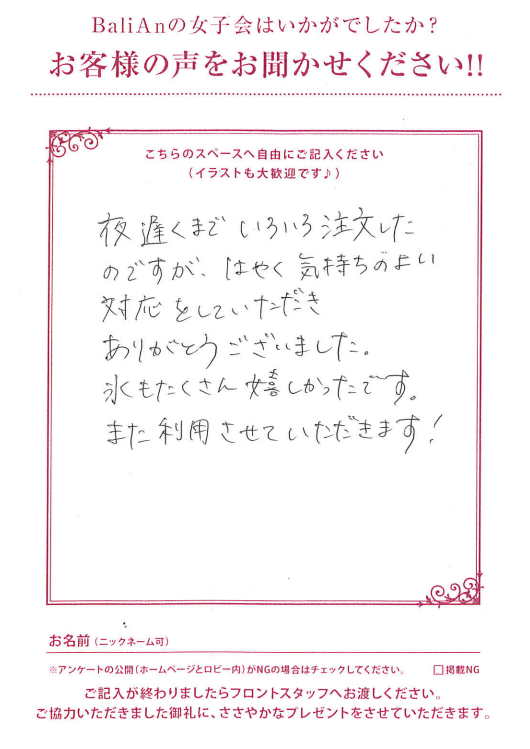 BaliAnの女子会はいかがでしたか？
お客様の声をお聞かせください!!
こちらのスペースへ自由にご記入ください
（イラストも大歓迎です♪）
夜遅くまでいろいろ注文した
のですが、はやく気持ちのよい
対応をしていただき
ありがとうございました。
氷もたくさん嬉しかったです。
また利用させていただきます！
お名前（ニックネーム可）
※アンケートの公開（ホームページとロビー内）がNGの場合はチェックしてください。 □掲載NG
ご記入が終わりましたらフロントスタッフへお渡しください。
ご協力いただきました御礼に、ささやかなプレゼントをさせていただきます。